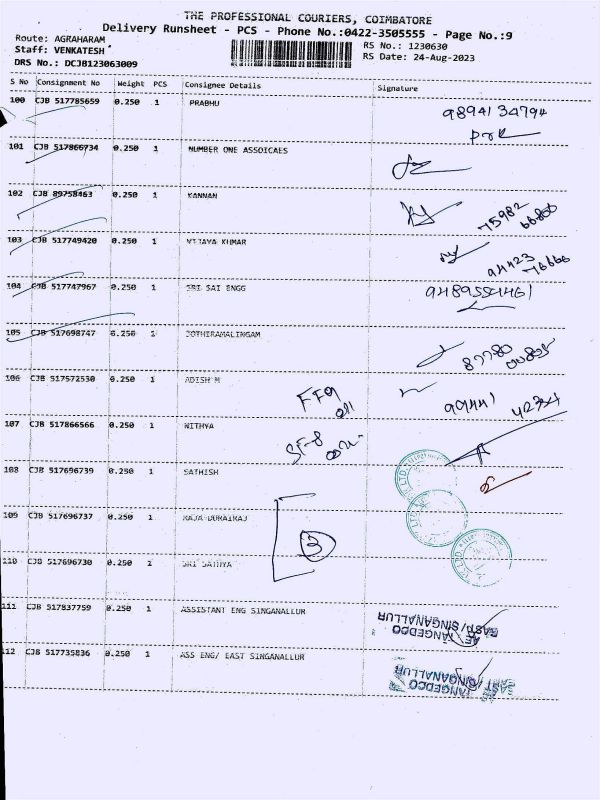 THE PROFESSIONAL COURIERS, COIMBATORE
Delivery Runsheet - PCS - Phone No.:0422-3505555 - Page No.:9
Route: AGRAHARAM
Staff: VENKATESH
DRS No.: DCJB123063009
RS No.: 1230630
RS Date: 24-Aug-2023
S No Consignment No Weight PCS Consignee Details Signature
100 CJB 517785659 0.250 1 PRABHU 9894134794
101 CJB 517866734 0.250 1 NUMBER ONE ASSOICAES
102 CJB 89758463 0.250 1 KANNAN 75982
103 CJB 517749420 0.250 1 VIJAYA KUMAR 94423
104 CJB 517747967 0.250 1 SRI SAI ENGG 9489554461
105 CJB 517698747 0.250 1 JOTHIRAMALINGAM 87780
106 CJB 517572530 0.250 1 ADISH M FF9 99441 42734
107 CJB 517866566 0.250 1 NITHYA SF-8
108 CJB 517696739 0.250 1 SATHISH
109 CJB 517696737 0.250 1 RAJA DURAIRAJ
3
110 CJB 517696730 0.250 1 SRI SATHYA
111 CJB 517837759 0.250 1 ASSISTANT ENG SINGANALLUR
AE TANGEDCO
EAST/SINGANALLUR
112 CJB 517735836 0.250 1 ASS ENG/ EAST SINGANALLUR
TANGEDCO
EAST/SINGANALLUR